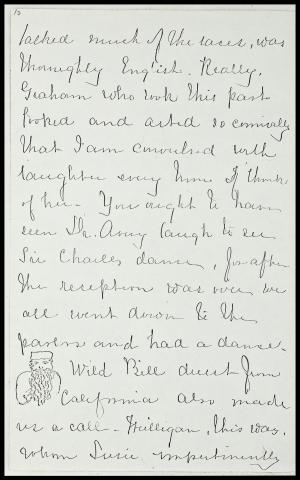 10
lacked much of the laces, was
thoroughly English. Really,
Graham who took this part
looked and acted so comically
that I am convulsed with
laughter every time I think
of her - You ought to have
seen Dr. Avery laugh to see
Sir Charles dance, for after
the reception was over we
all went down to the
parlors and had a dance -
Wild Bill direct from
California also made
us a call - Hulligan, this was,
whom Susie impertinently